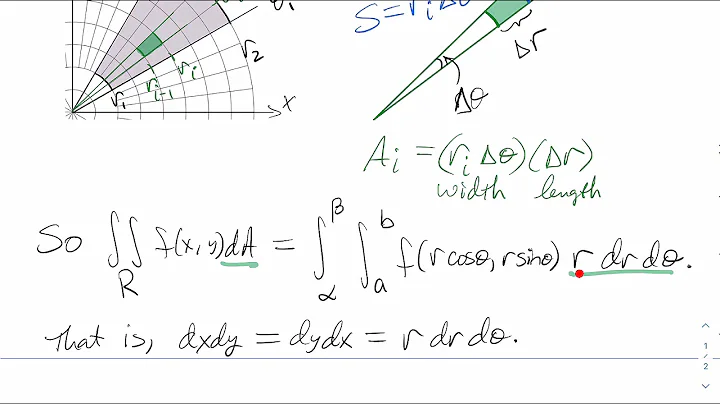 S = r_i Δθ
θ_1
r_2
r_i
r_{i-1}
r_1
x
Δr
Δθ
A_i = (r_i Δθ)(Δr)
width length
So ∬_R f(x,y)dA = ∫_α^β ∫_a^b f(r cosθ, r sinθ) r dr dθ.
That is, dxdy = dydx = r dr dθ.
1
/
2